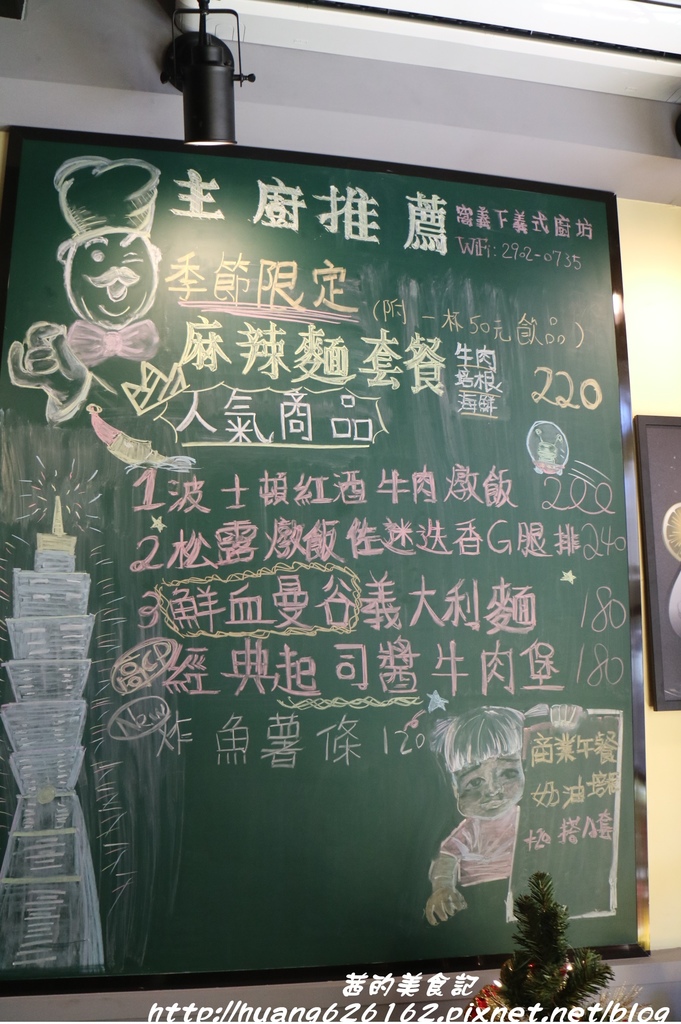 主廚推薦
窩義下義式廚坊
WiFi: 2902-0735
季節限定
(附一杯50元飲品)
麻辣麵套餐
牛肉
培根
海鮮
220
人氣商品
1波士頓紅酒牛肉燉飯 200
2松露燉飯佐迷迭香G腿排240
3鮮血曼谷義大利麵 180
高CP 經典起司醬牛肉堡 180
New 炸魚薯條 120
商業午餐
奶油培根
搭A套
茜的美食記
http://huang626162.pixnet.net/blog